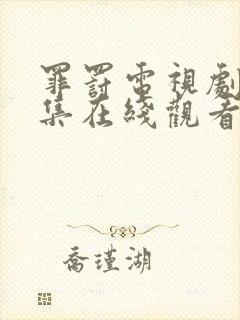 罪罰電視劇
集在綫觀看
喬瑾湖